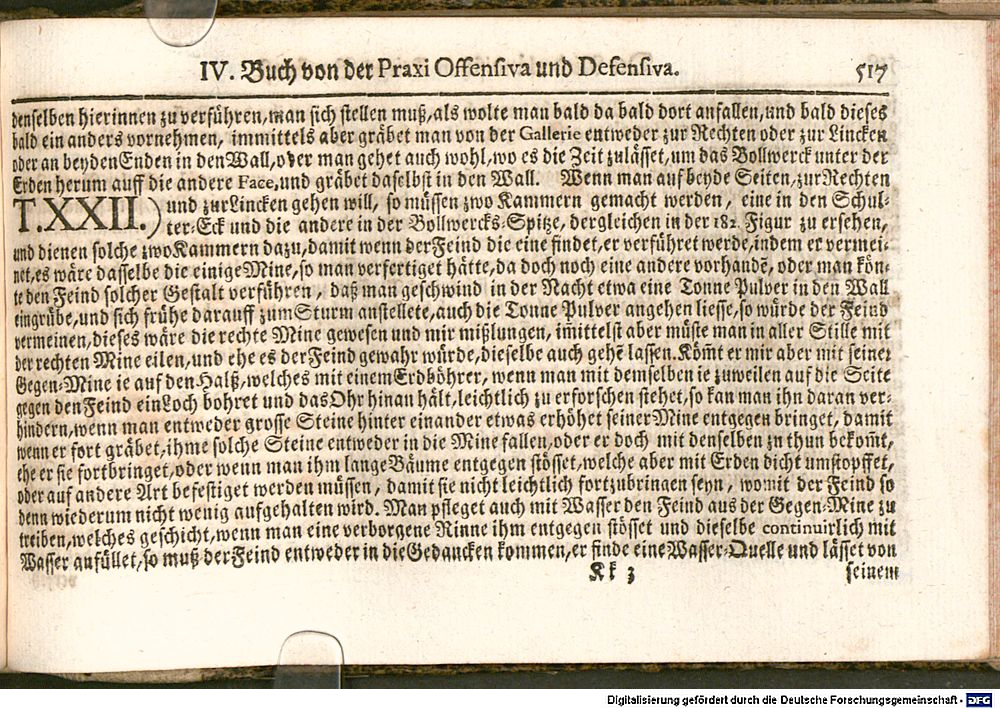 IV. Buch von der Praxi Offensiva und Defensiva. 517
denselben hierinnen zu verführen, man sich stellen muß, als wolte man bald da bald dort anfallen, und bald dieses
bald ein anders vornehmen, immittels aber gräbet man von der Gallerie entweder zur Rechten oder zur Lincken
oder an beyden Enden in den Wall, oder man gehet auch wohl, wo es die Zeit zulässet, um das Bollwerck unter der
Erden herum auff die andere Face, und gräbet daselbst in den Wall. Wenn man auf beyde Seiten, zur Rechten
T. XXII.) und zur Lincken gehen will, so müssen zwo Kammern gemacht werden, eine in den Schul-
ter-Eck und die andere in der Bollwercks-Spitze, dergleichen in der 182. Figur zu ersehen,
und dienen solche zwo Kammern dazu, damit wenn der Feind die eine findet, er verführet werde, indem er vermei-
net, es wäre dasselbe die einige Mine, so man verfertiget hätte, da doch noch eine andere vorhandē, oder man kön-
te den Feind solcher Gestalt verführen, daß man geschwind in der Nacht etwa eine Tonne Pulver in den Wall
eingrübe, und sich frühe darauff zum Sturm anstellete, auch die Tonne Pulver angehen liesse, so würde der Feind
vermeinen, dieses wäre die rechte Mine gewesen und mir mißlungen, im̄ittelst aber müste man in aller Stille mit
der rechten Mine eilen, und ehe es der Feind gewahr würde, dieselbe auch gehē lassen. Köm̄t er mir aber mit seiner
Gegen-Mine ie auf den Halß, welches mit einem Erdböhrer, wenn man mit demselben ie zuweilen auf die Seite
gegen den Feind ein Loch bohret und das Ohr hinan hält, leichtlich zu erforschen stehet, so kan man ihn daran ver-
hindern, wenn man entweder grosse Steine hinter einander etwas erhöhet seiner Mine entgegen bringet, damit
wenn er fort gräbet, ihme solche Steine entweder in die Mine fallen, oder er doch mit denselben zu thun bekom̄t,
ehe er sie fortbringet, oder wenn man ihm lange Bäume entgegen stösset, welche aber mit Erden dicht umstopffet,
oder auf andere Art befestiget werden müssen, damit sie nicht leichtlich fortzubringen seyn, womit der Feind so
denn wiederum nicht wenig aufgehalten wird. Man pfleget auch mit Wasser den Feind aus der Gegen-Mine zu
treiben, welches geschicht, wenn man eine verborgene Rinne ihm entgegen stösset und dieselbe continuirlich mit
Wasser anfüllet, so muß der Feind entweder in die Gedancken kommen, er finde eine Wasser-Quelle und lässet von
Kk 3 seinem
Digitalisierung gefördert durch die Deutsche Forschungsgemeinschaft - DFG